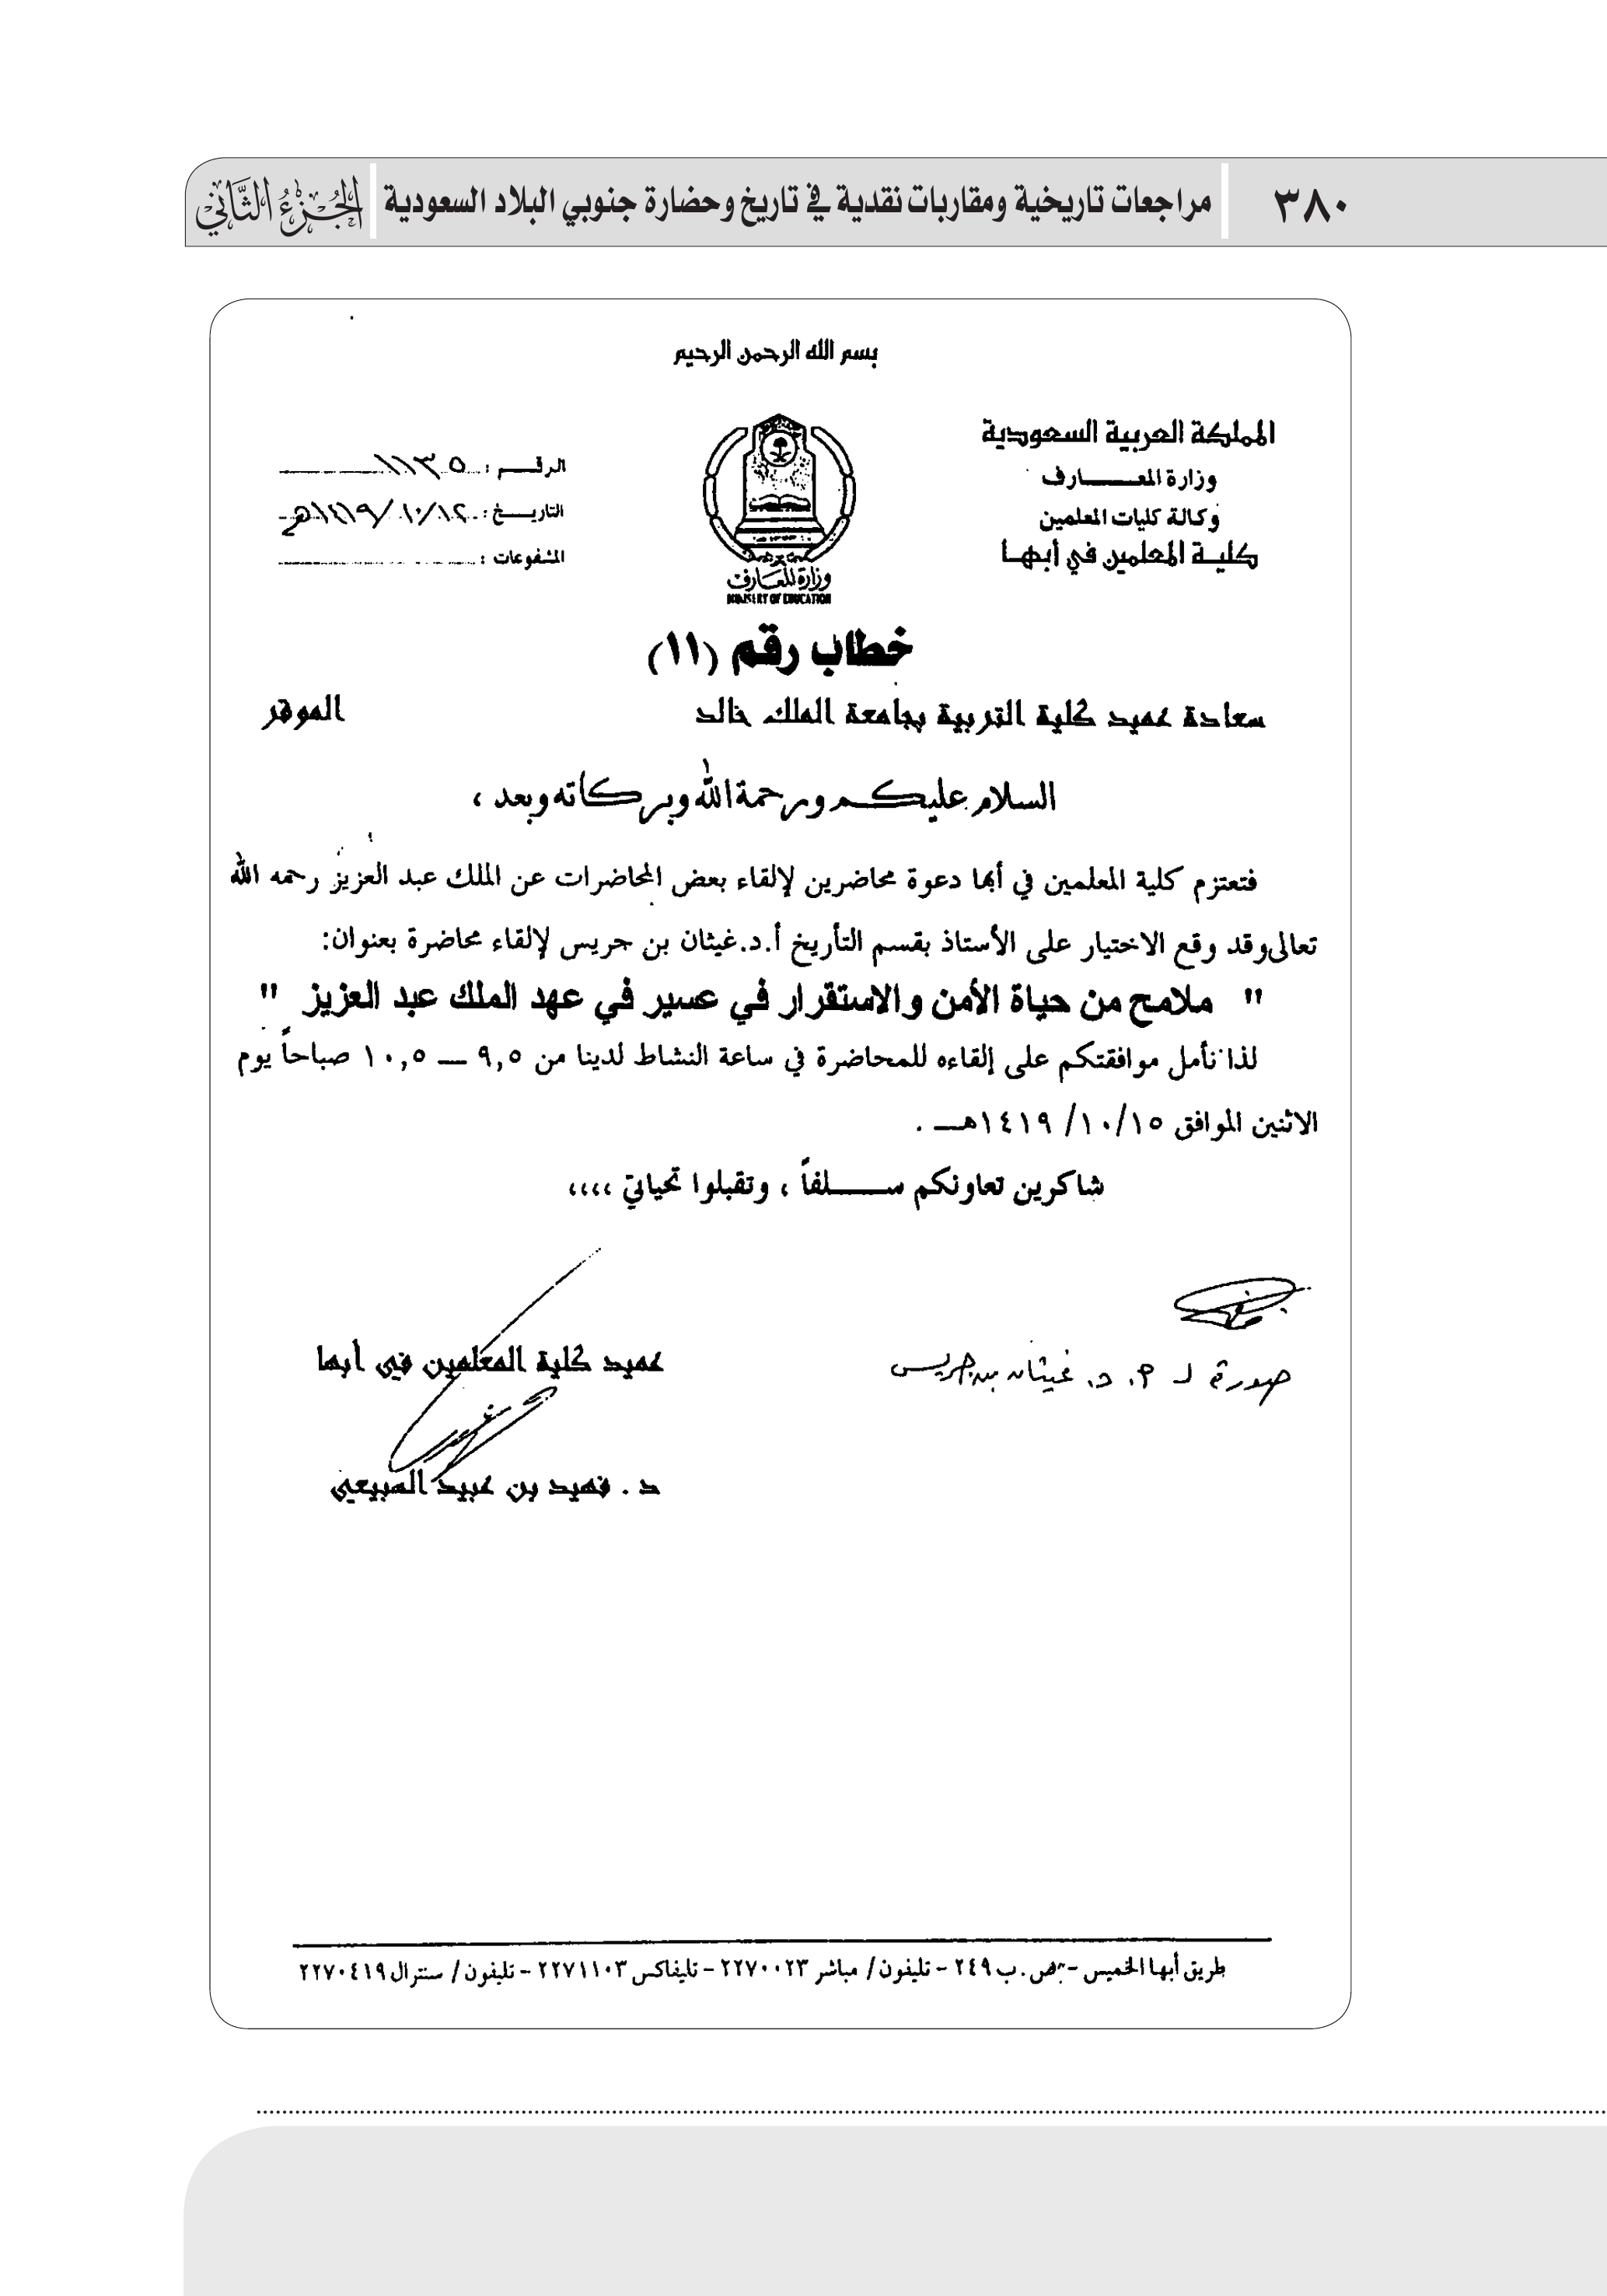 ٣٨٠
مراجعات تاريخية ومقاربات نقدية في تاريخ وحضارة جنوبي البلاد السعودية
الجُزءُ الثَّاني
بسم الله الرحمن الرحيم
المملكة العربية السعودية
وزارة المعـــــارف
وكالة كليات المعلمين
كليـة المعلمين في أبهـا
وزارة المعارف
MINISTRY OF EDUCATION
الرقـــم : ١١٣٥
التاريــخ : ١٤١٩/١٠/١٢هـ
المشفوعات :
خطاب رقم (١١)
سعادة عميد كلية التربية بجامعة الملك خالد الموقر
السلام عليكم ورحمة الله وبركاته وبعد ،
فتعتزم كلية المعلمين في أبها دعوة محاضرين لإلقاء بعض المحاضرات عن الملك عبد العزيز رحمه الله
تعالى وقد وقع الاختيار على الأستاذ بقسم التأريخ أ.د.غيثان بن جريس لإلقاء محاضرة بعنوان:
" ملامح من حياة الأمن والاستقرار في عسير في عهد الملك عبد العزيز "
لذا نأمل موافقتكم على إلقاءه للمحاضرة في ساعة النشاط لدينا من ٩,٥ ــ ١٠,٥ صباحاً يوم
الاثنين الموافق ١٤١٩/١٠/١٥هــ .
شاكرين تعاونكم ســـلفاً ، وتقبلوا تحياتي ،،،،
صورة لـ أ. د. غيثان بن جريس
عميد كلية المعلمين في أبها
د . فهيد بن عبيد السبيعي
طريق أبها الخميس - ص.ب ٢٤٩ - تليفون/ مباشر ٢٢٧٠٠٢٣ - تليفاكس ٢٢٧١١٠٣ - تليفون/ سنترال ٢٢٧٠٤١٩